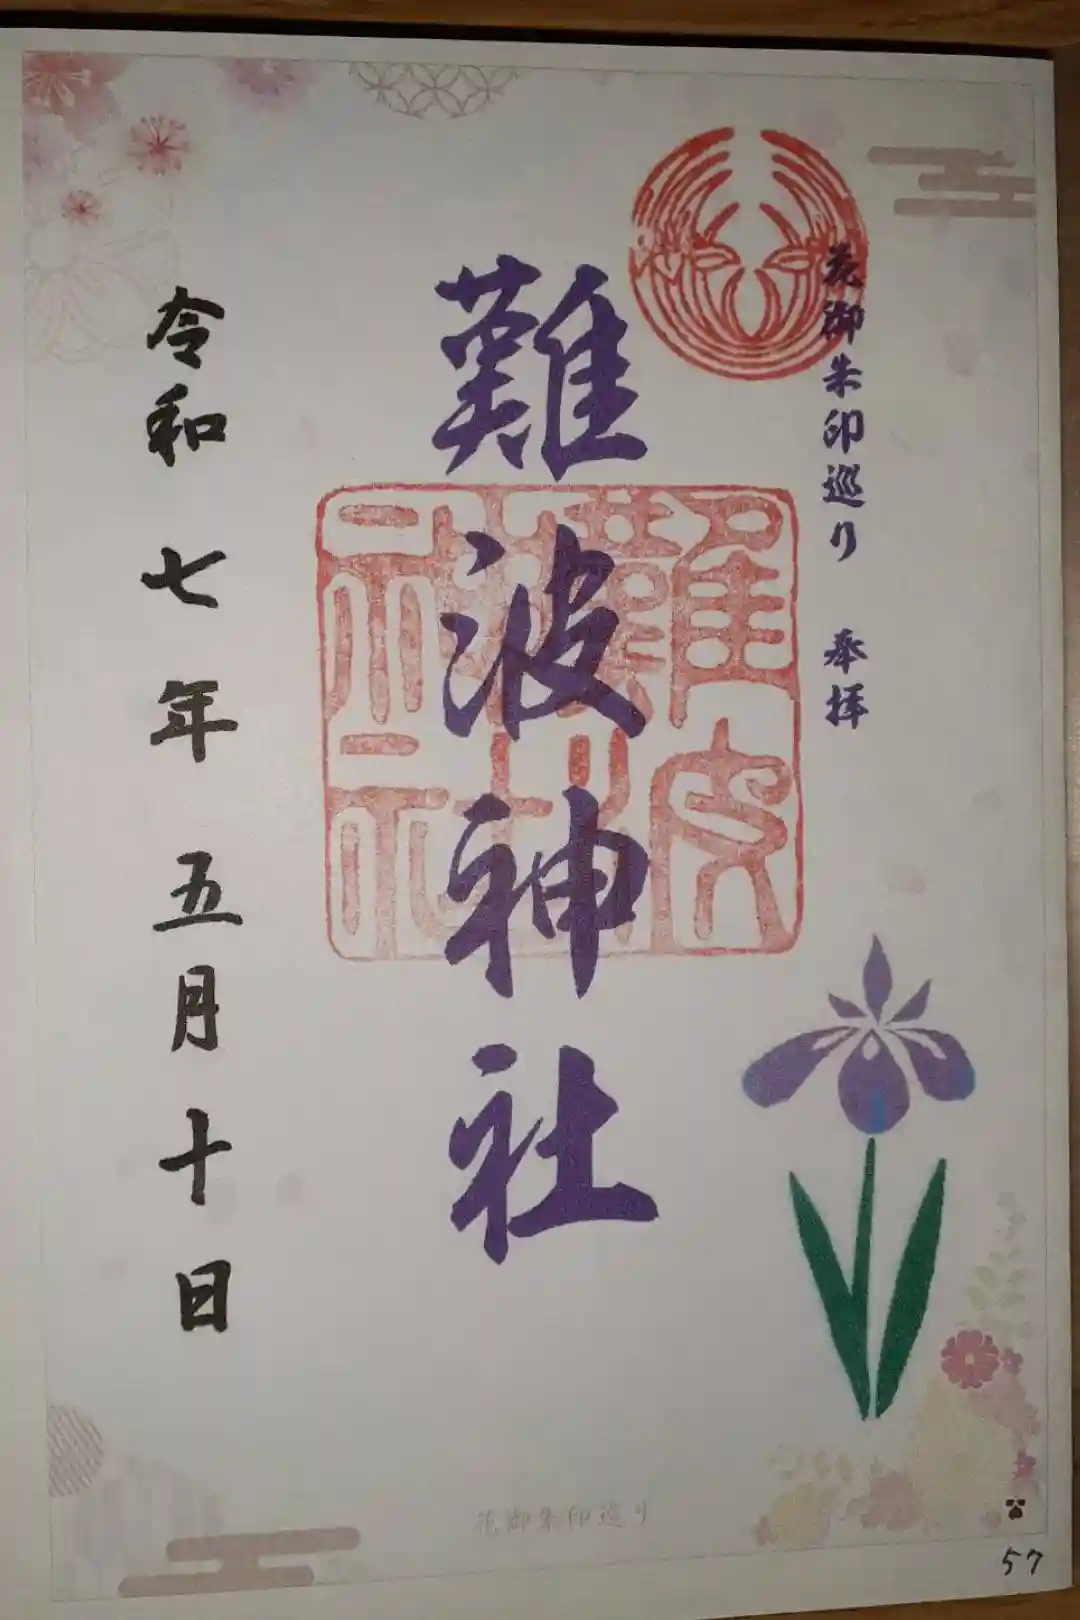 花御朱印巡り 奉拝
難波神社
難波神社
令和七年五月十日
花御朱印巡り
57